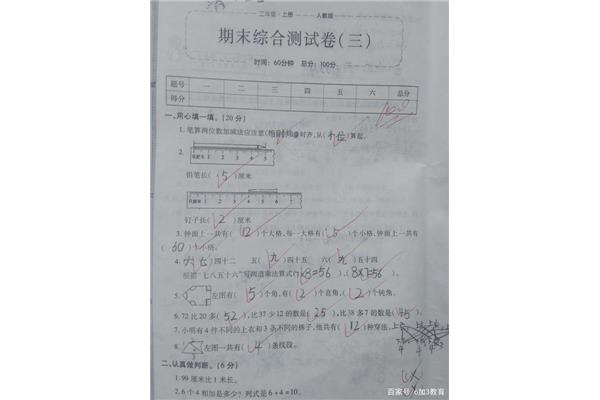 二年级·上册 人教版
期末综合测试卷(三)
时间:60分钟 总分:100分
题号 一 二 三 四 五 六 总分
得分
100
一、用心填一填。(20分)
1.笔算两位数加减法应注意(相同)数位对齐,从(个位)算起。
2.
0厘米 1 2 3 4 5
铅笔长(5)厘米
0厘米 1 2 3 4 5 6 7
钉子长(2)厘米
3.钟面上一共有(12)个大格,每一大格有(5)个小格,钟面上一共有
(60)个小格。
4.(六七)四十二 五(九)四十五 六(九)五十四
根据“七八五十六”写两道乘法算式(7×8=56)、(8×7=56)。
5. 左图有(5)个角,有(2)个直角,(2)个钝角。
6.72比20多(52),比37少12的数是(25),比38多7的数是(45)。
7.小明有4件不同的上衣和3条不同的裤子,他共有(12)种穿法。
8. 左图一共有(4)条线段。
二、认真做判断。(6分)
1.99厘米比1米长。 (×)
2.6个4相加是多少?列式是6+4=10。
百家号/6加3教育